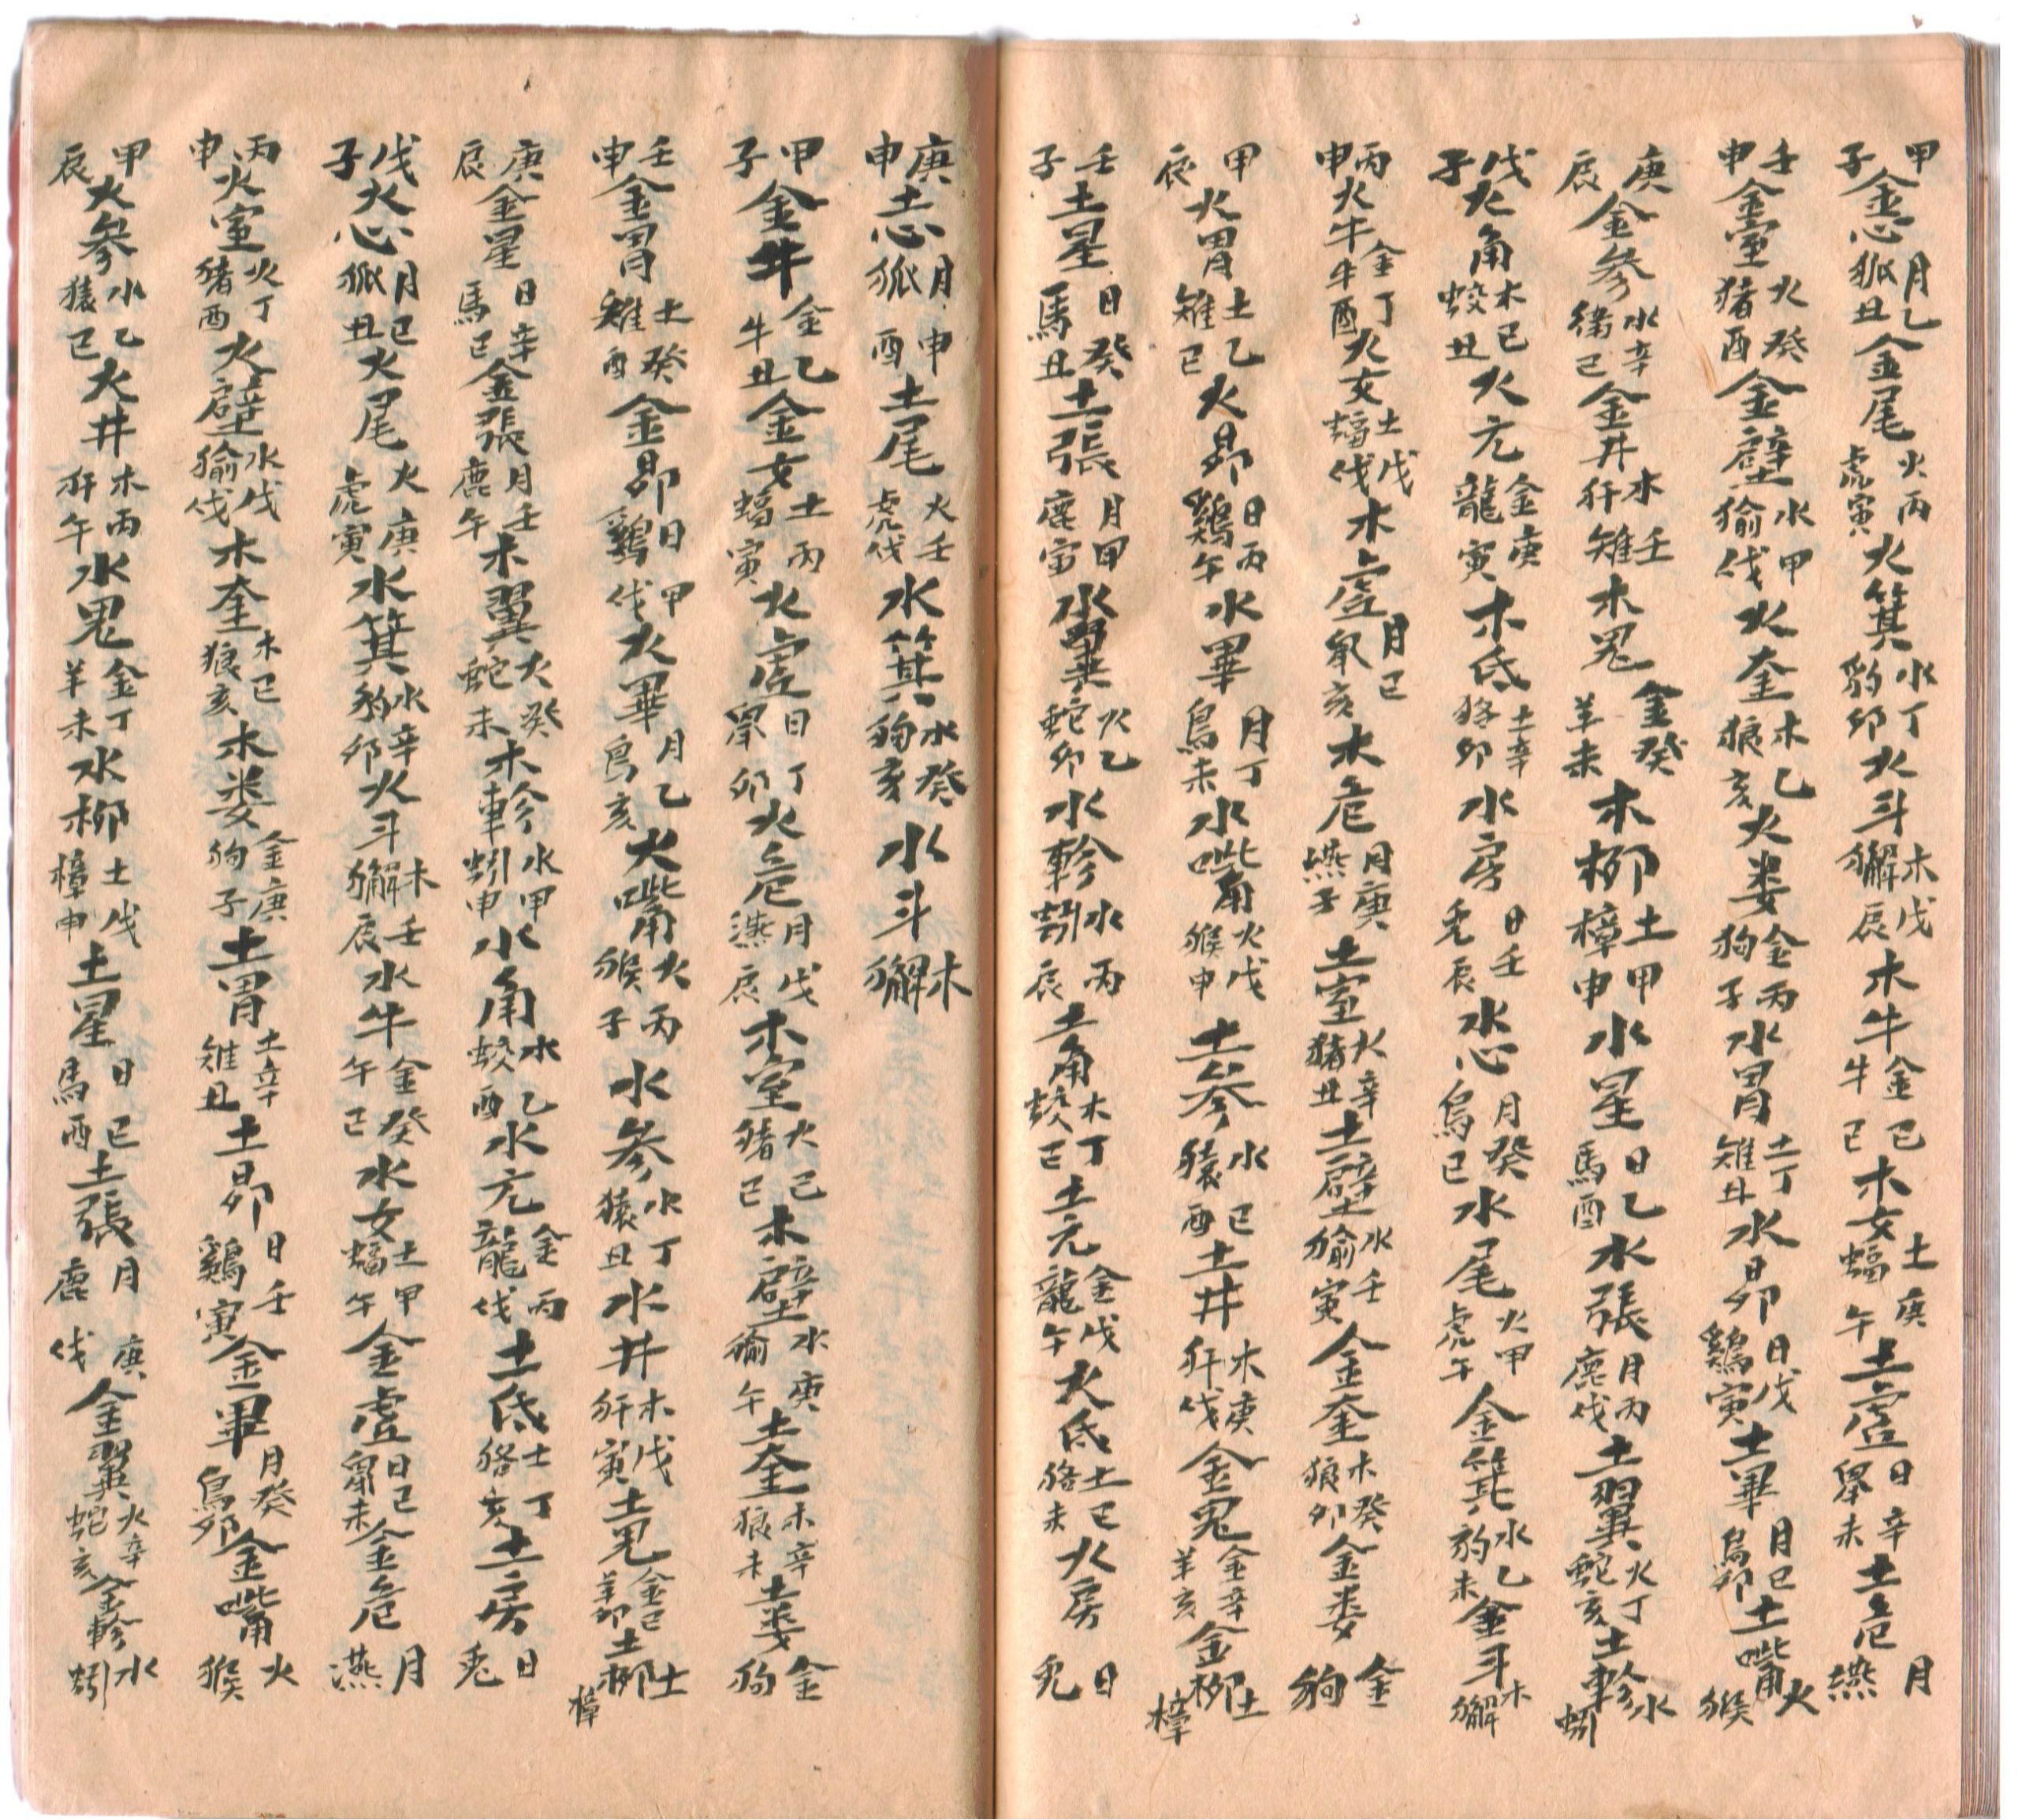 甲子金心月狐乙丑金尾火虎丙寅火箕水豹丁卯火斗木獬戊辰木牛金牛己巳木女土蝠庚午土虚日鼠辛未土危月燕
壬申金室火猪癸酉金壁水㺄甲伐火奎木狼乙亥火娄金狗丙子水胃土雉丁丑水昴日鷄戊寅土畢月烏己卯土嘴火猴
庚辰金參水猿辛巳金井木犴壬雉木鬼金羊癸未木柳土樟甲申水星日馬乙酉水張月鹿丙伐土翼火蛇丁亥土軫水蚓
戊子火角木蛟己丑火亢金龍庚寅木低土狢辛卯水房日兎壬辰水心月烏癸巳水尾火虎甲午金箕水豹乙未金斗木獬
丙申火牛金牛丁酉火女土蝠戊伐木虚月鼠己亥木危月燕庚子土室火猪辛丑土壁水㺄壬寅金奎木狼癸卯金娄金狗
甲辰火胃土雉乙巳火昴日鷄丙午水畢月烏丁未水嘴火猴戊申土參水猿己酉土井木犴庚伐金鬼金羊辛亥金柳土樟
壬子土星日馬癸丑土張月鹿甲寅水翼火蛇乙卯水軫水蚓丙辰土角木蛟丁巳土亢金龍戊午火低土狢己未火房日兎
庚申土心月狐申酉土尾火虎壬伐水箕水豹癸亥水斗木獬
甲子金牛金牛乙丑金女土蝠丙寅火虚日鼠丁卯火危月燕戊辰木室火猪己巳木壁水㺄庚午土奎木狼辛未土娄金狗
壬申金胃土雉癸酉金昴日鷄甲伐火畢月烏乙亥火嘴火猴丙子水參水猿丁丑水井木犴戊寅土鬼金羊己卯土柳土樟
庚辰金星日馬辛巳金張月鹿壬午木翼火蛇癸未木軫水蚓甲申水角水蛟乙酉水亢金龍丙伐土低土狢丁亥土房日兎
戊子火心月狐己丑火尾火虎庚寅水箕水豹辛卯火斗木獬壬辰水牛金午癸巳水女土蝠甲午金虚日鼠己未金危月燕
丙申火室火猪丁酉火壁水㺄戊伐木奎木狼己亥木娄金狗庚子土胃土雉辛丑土昴日鷄壬寅金畢月烏癸卯金嘴火猴
甲辰火參水猿乙巳火井木犴丙午水鬼金羊丁未水柳土樟戊申土星日馬己酉土張月鹿庚伐金翼火蛇辛亥金軫水蚓